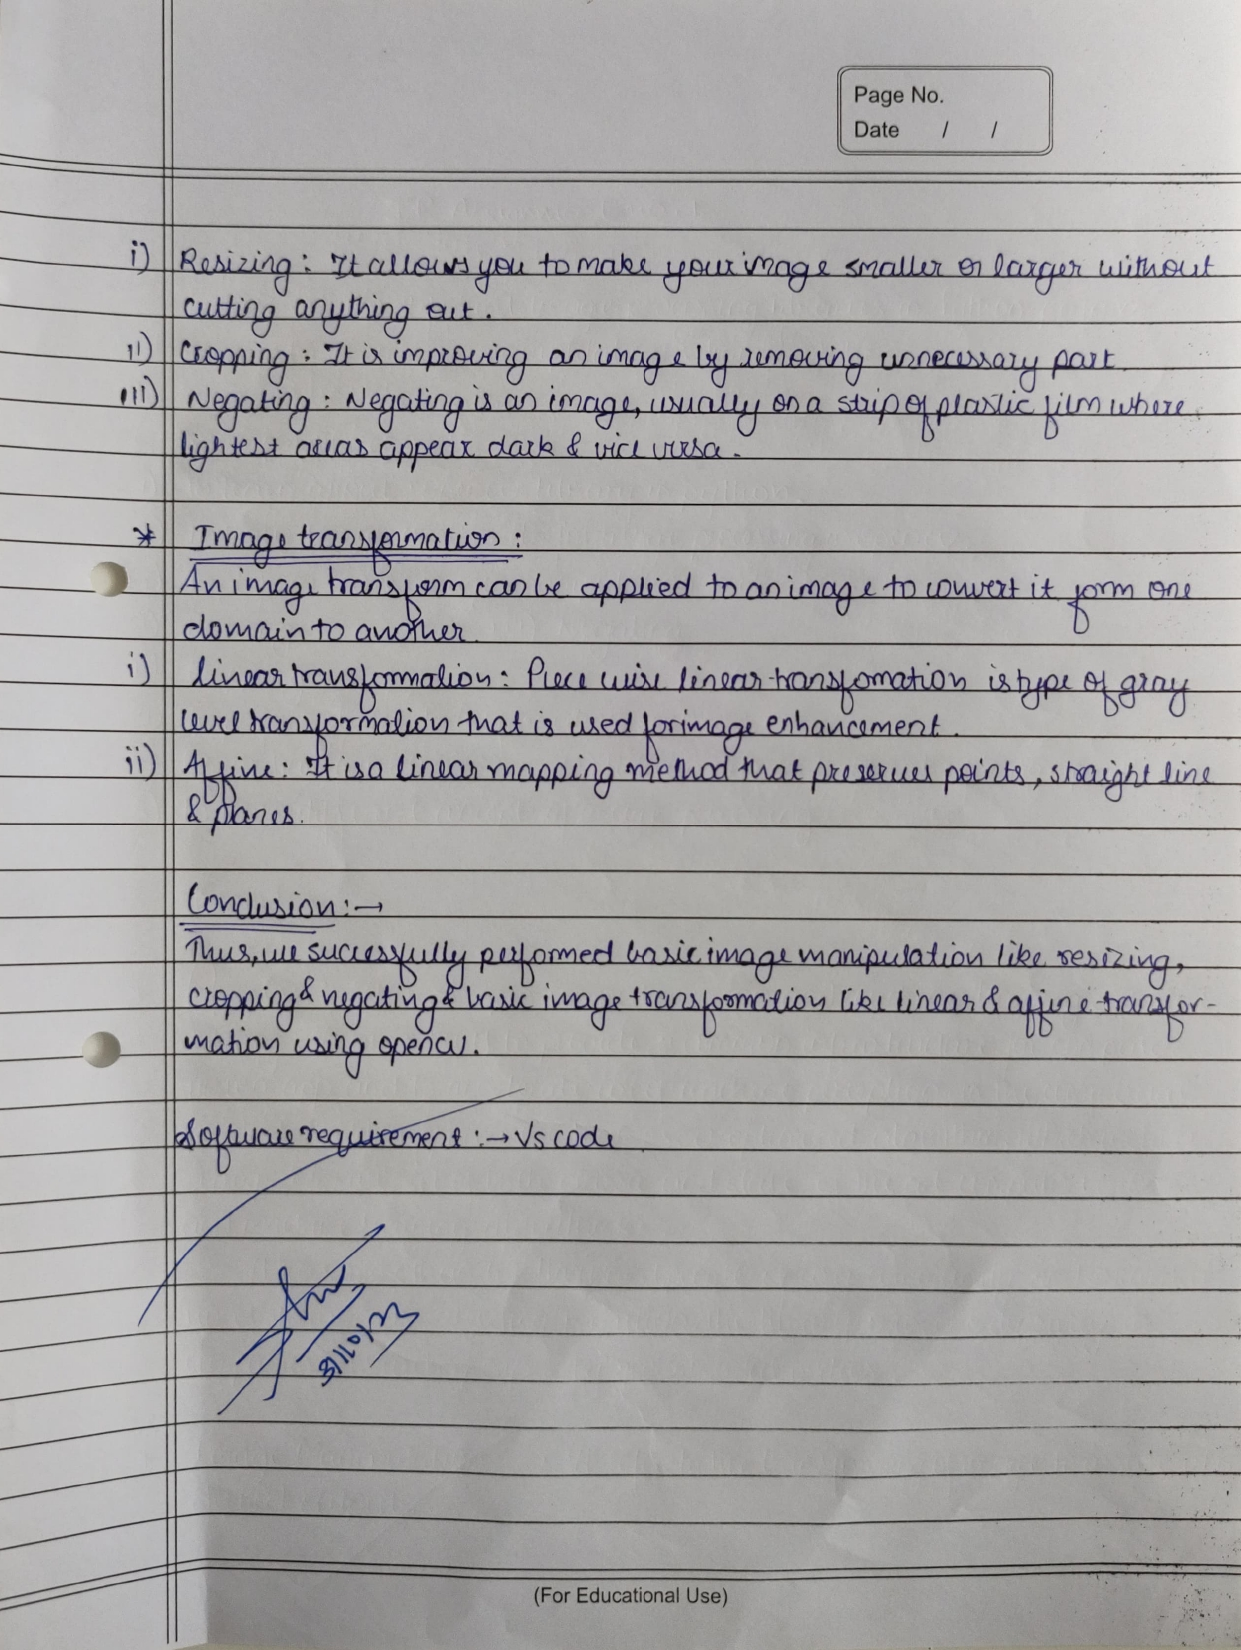 Page No.
Date / /
i) Resizing : It allows you to make your image smaller or larger without
cutting anything out .
ii) Cropping : It is improving an image by removing unnecessary part
iii) Negating : Negating is an image, usually on a strip of plastic film where
lightest areas appear dark & vice versa .
* Image transformation :
An image transform can be applied to an image to convert it form one
domain to another
i) linear transformation : Piece wise linear transfomation is type of gray
level transformation that is used for image enhancement .
ii) Affine : It is a linear mapping method that preserves points , straight line
& planes .
Conclusion :→
Thus, we successfully performed basic image manipulation like resizing ,
cropping & negating & basic image transformation like linear & affine transfor-
mation using opencv .
Software requirement :→ Vs code
(For Educational Use)